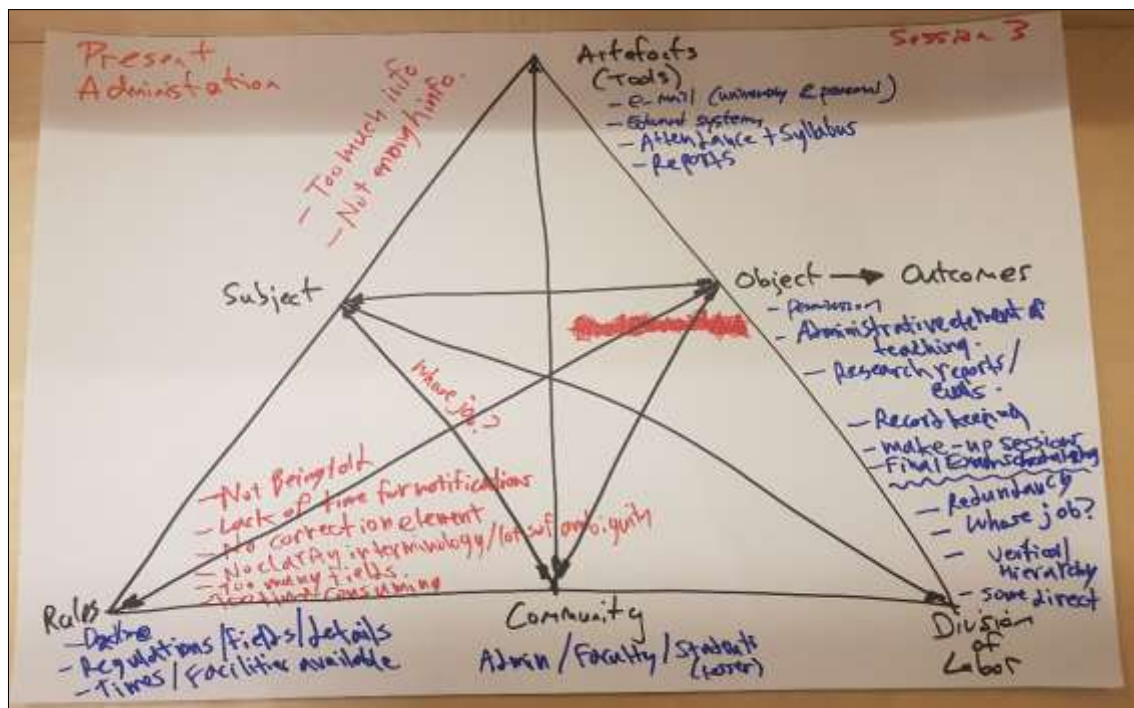 Present
Administation
Session 3
Artefacts
(Tools)
- e-mail (university & personal)
- systems
- Attendance + Syllabus
- Reports
- Too much info
- Not enough info.
Subject
Object → Outcomes
- permission
- Administrative element of
teaching.
- Research reports/
evals.
- Record keeping
- make-up sessions
- Final Exam scheduling
- Redundancy
- Whose job?
- vertical/
Hierarchy
- some direct
Whose job?
- Not Being told
- Lack of time for notifications
- No correction element
- No clarity in terminology/lots of ambiguity
- Too many fields.
- Too time consuming
Rules
- Regulations/Fields/details
- Times/Facilities available
Community
Admin/Faculty/Students
(lesser)
Division
of
Labor